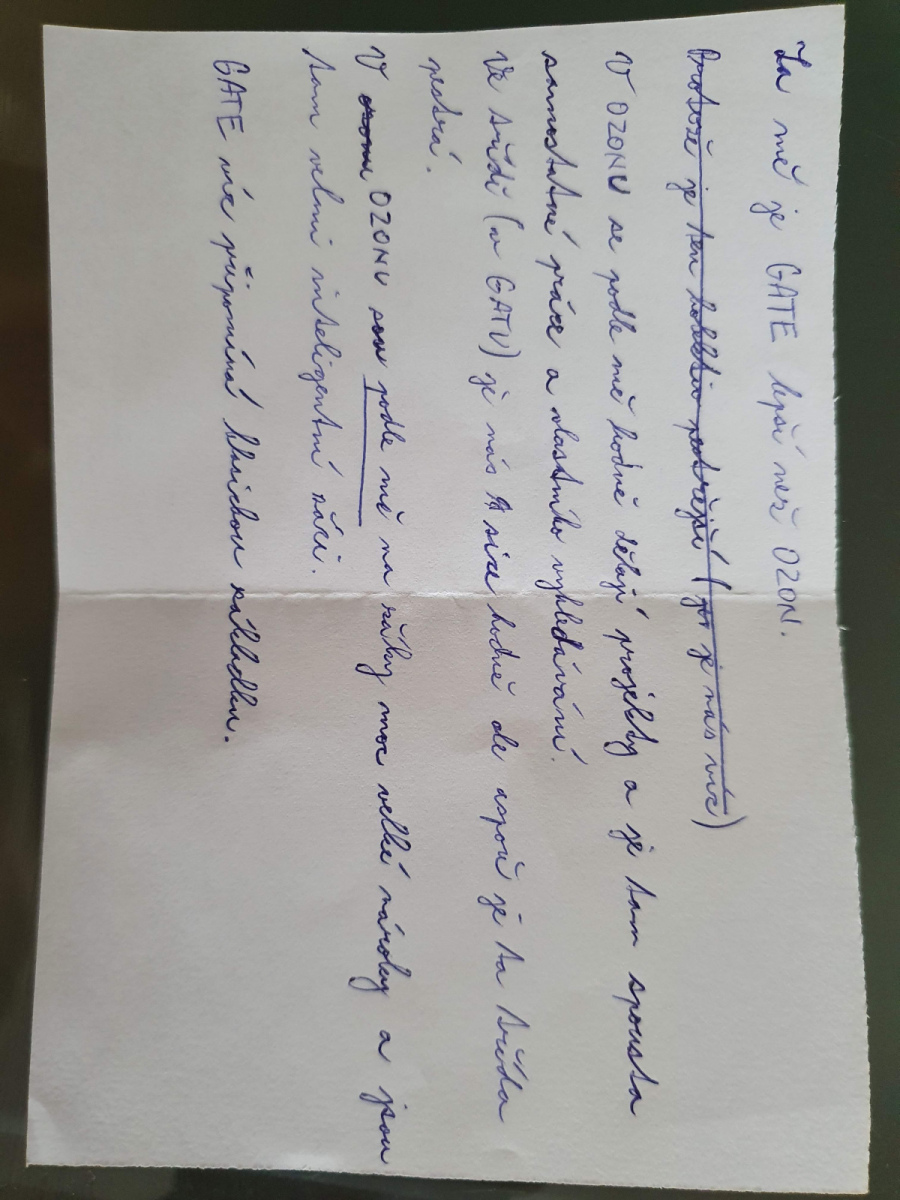 Za mě je GATE lepší než OZON.
Protože je ten kolektiv pestřejší (je nás víc)
V OZONU se podle mě hodně dělají projekty a je tam spousta
samostatné práce a vlastního vyhledávání.
Ve třídě (v GATU) je nás sice hodně ale aspoň je ta třída
pestrá.
V OZONU sou podle mě na žáky moc velké nároky a jsou
tam velmi inteligentní žáci.
GATE víc připomíná klasickou základku.